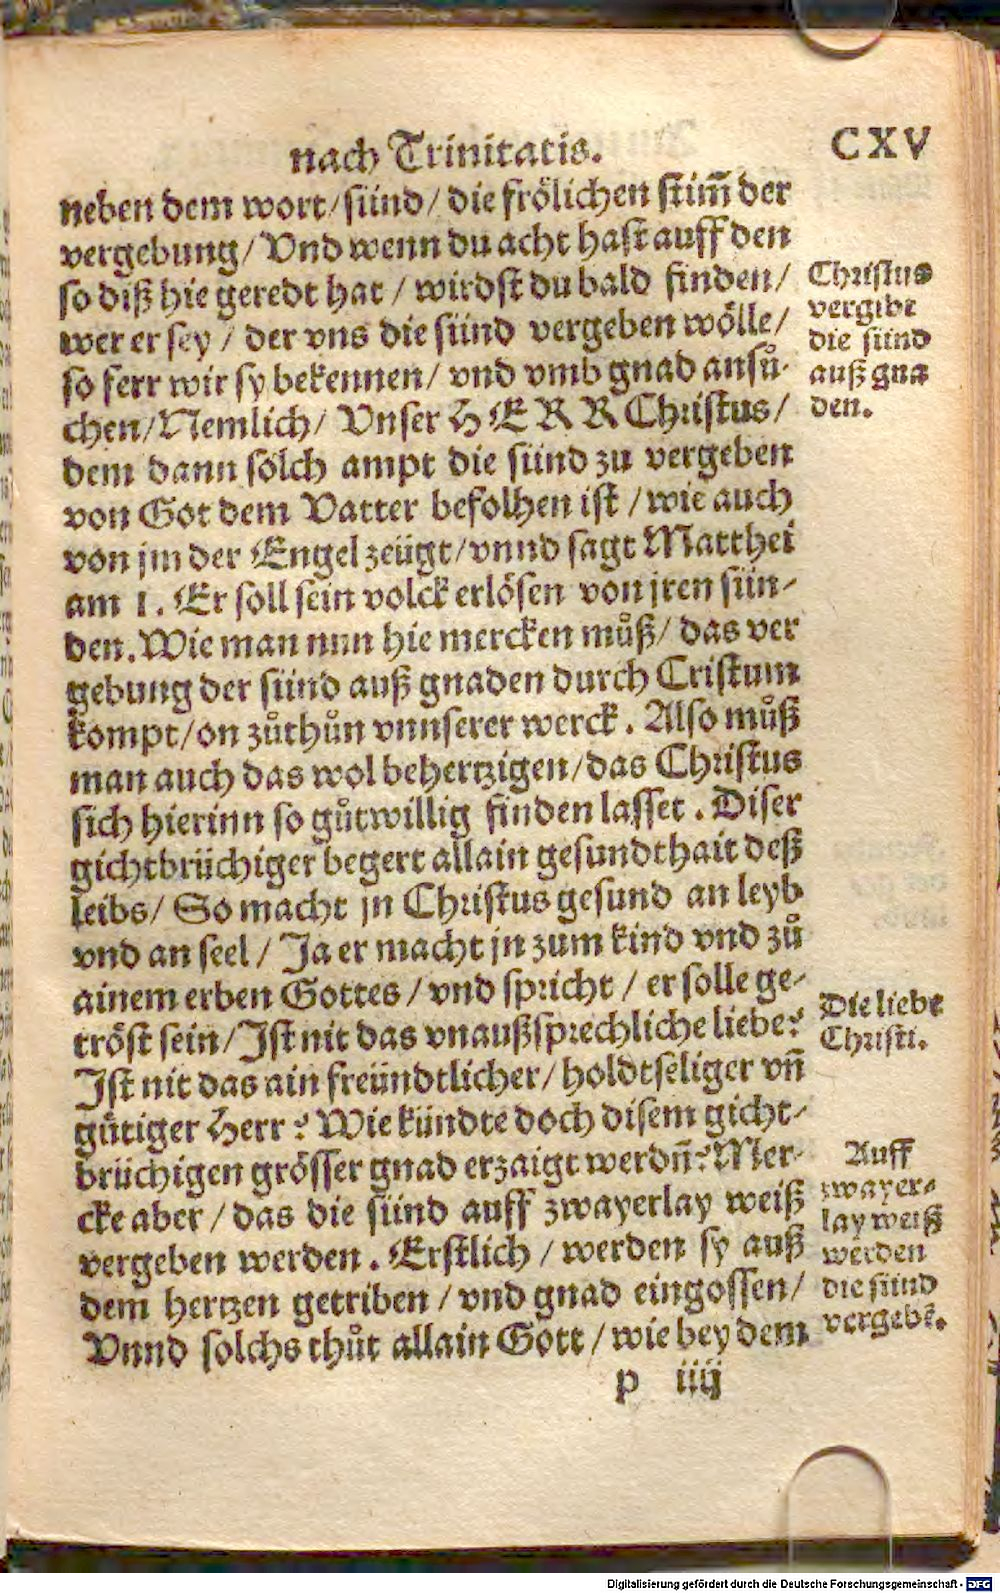 nach Trinitatis.
CXV
neben dem wort/ sünd/ die frölichen stim̃ der
vergebung/ Vnd wenn du acht hast auff den
so diß hie geredt hat / wirdst du bald finden/
wer er sey / der vns die sünd vergeben wölle/
so ferr wir sy bekennen/ vnd vmb gnad ansů-
chen/ Nemlich/ Vnser HERR Christus/
dem dann solch ampt die sünd zu vergeben
von Got dem Vatter befolhen ist / wie auch
von jm der Engel zeügt/ vnnd sagt Matthei
am 1. Er soll sein volck erlösen von jren sün-
den. Wie man nun hie mercken můß/ das ver
gebung der sünd auß gnaden durch Cristum
kompt/ on zůthůn vnnserer werck. Also můß
man auch das wol behertzigen/ das Christus
sich hierinn so gůtwillig finden lasset. Diser
gichtbrüchiger begert allain gesundthait deß
leibs/ So macht jn Christus gesund an leyb
vnd an seel / Ja er macht jn zum kind vnd zů
ainem erben Gottes / vnd spricht / er solle ge-
tröst sein/ Ist nit das vnaußsprechliche liebe?
Ist nit das ain freündtlicher/ holdtseliger vñ
gůtiger Herr? Wie kündte doch disem gicht-
brüchigen grösser gnad erzaigt werdñ? Mer-
cke aber / das die sünd auff zwayerlay weiß
vergeben werden. Erstlich / werden sy auß
dem hertzen getriben / vnd gnad eingossen/
Vnnd solchs thůt allain Gott / wie bey dem
p iiij
Christus
vergibt
die sünd
auß gna
den.
Die liebe
Christi.
Auff
zwayer-
lay weiß
werden
die sünd
vergebẽ.
Digitalisierung gefördert durch die Deutsche Forschungsgemeinschaft - DFG